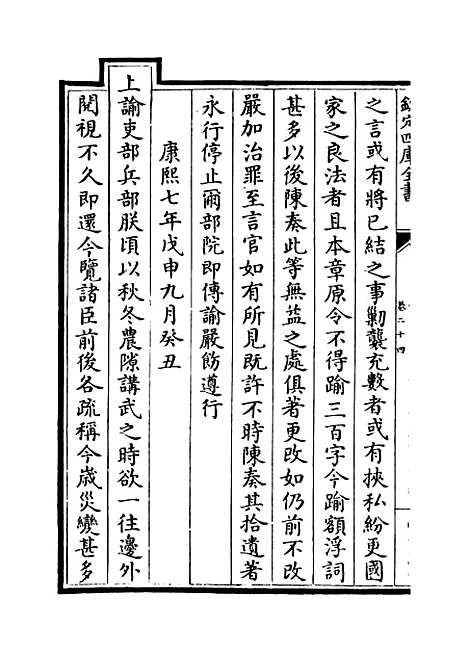 欽定四庫全書
卷二十四
之言或有將已結之事勦襲充數者或有挾私紛更國
家之良法者且本章原令不得踰三百字今踰額浮詞
甚多以後陳奏此等無益之處俱著更改如仍前不改
嚴加治罪至言官如有所見既許不時陳奏其拾遺著
永行停止爾部院即傳諭嚴飭遵行
康熙七年戊申九月癸丑
上諭吏部兵部朕頃以秋冬農隙講武之時欲一往邊外
閱視不久即還今覽諸臣前後各疏稱今歲災變甚多